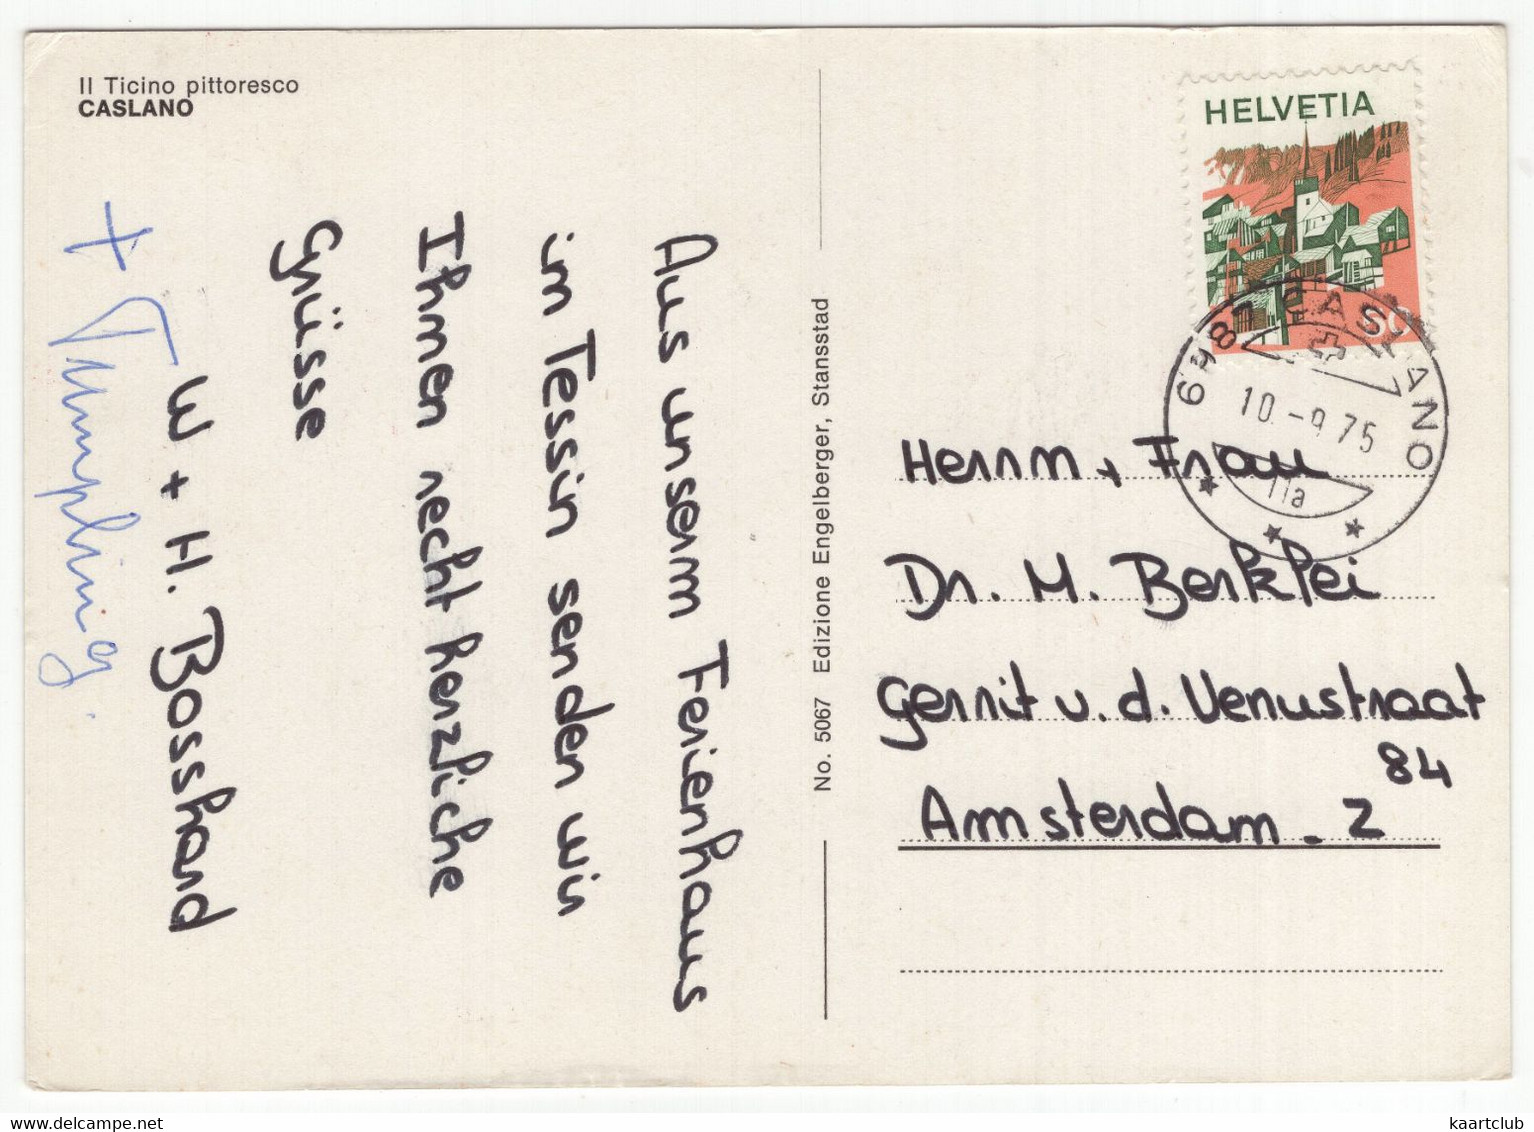 Il Ticino pittoresco
CASLANO
Aus unserm Ferienhaus
im Tessin senden wir
Ihnen recht herzliche
Grüsse
W + H. Bosshard
+
No. 5067 Edizione Engelberger, Stansstad
HELVETIA
50
6987 CASLANO
10.-9.75
11a
Herrn + Frau
Dr. M. Berklei
Gerrit v. d. Venustraat
84
Amsterdam. Z
www.delcampe.net
kaartclub